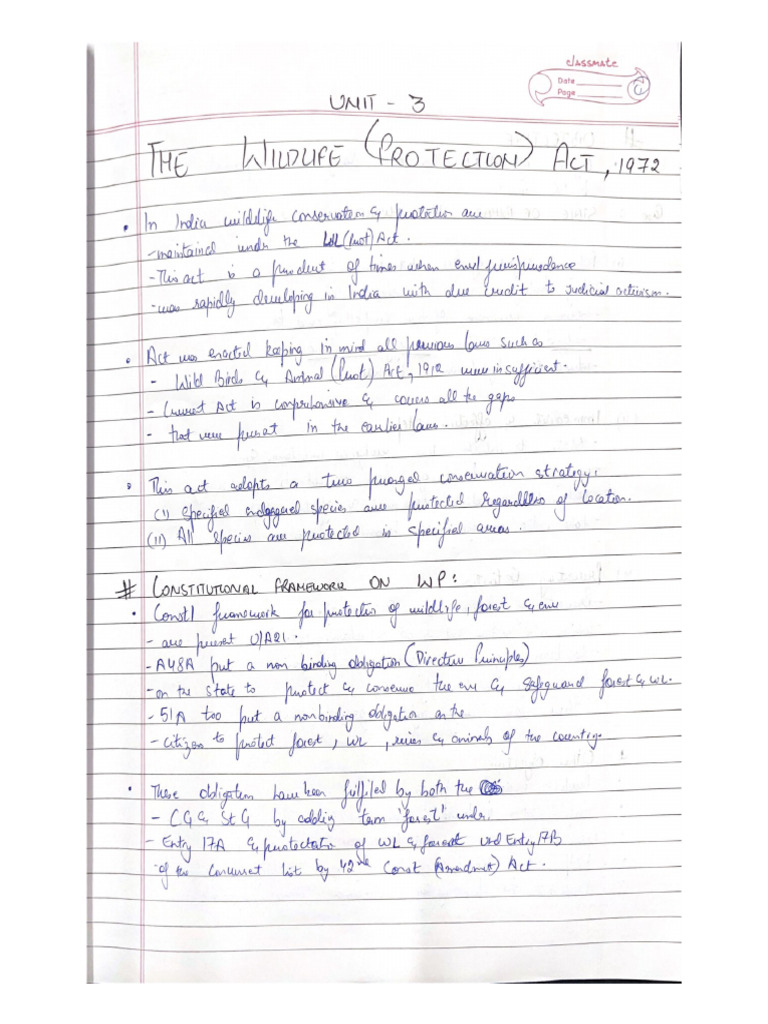 classmate
Date
Page
UNIT - 3
THE WILDLIFE (PROTECTION) ACT, 1972
• In India wildlife conservation & protection are
- maintained under the WL (Prot) Act.
- This act is a product of times when envl jurisprudence
- was rapidly developing in India with due credit to judicial activism.
• Act was enacted keeping in mind all previous laws such as
- Wild Birds & Animal (Prot) Act, 1912 were insufficient.
- Current Act is comprehensive & covers all the gaps
- that were present in the earlier laws.
• This act adopts a two pronged conservation strategy:
(i) Specified endangered species are protected regardless of location.
(ii) All species are protected in specified areas.
# CONSTITUTIONAL FRAMEWORK ON WP:
• Constl framework for protection of wildlife, forest & env
- are present U/A21.
- A48A put a non binding obligation (Directive Principles)
- on the state to protect & conserve the env & safeguard forest & WL.
- 51A too put a nonbinding obligation on the
- citizen to protect forest, WL, rivers & animals of the country.
• These obligation have been fulfilled by both the
- CG & St G by adding term "forest" under
- Entry 17A & protectation of WL & forest und Entry 17B
- of the concurrent list by 42nd Const (Amendment) Act.